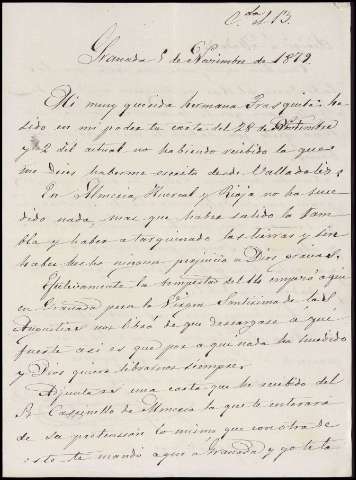 C.da el 13.
Granada 5 de Noviembre de 1879.
Mi muy querida hermana Frasquita: he
sido en mi poder tu carta del 28 de
y 2 del actual no habiendo recibido la que
me dices haberme escrito desde Valladolid;
En Almeria, Huercal y Rioja no ha suce
dido nada, mas que haber salido la ram
bla y haber atarquinado las tierras y sin
haber hecho ningun prejuicio a Dios gracias.
Efectivamente la tempestad del 14 empezó aqui
en Granada pero la Virgen Santisima de las
Angustias nos libró de que descargase aqui
fuerte asi es que por aqui nada ha sucedido
y Dios quiera librarnos siempre.
Adjunta va una carta que he recibido del
Sr. Cassinello de Almeria la que te enterará
de su pretension lo mismo que con otra de
esto te mando aqui a Granada y yo te la